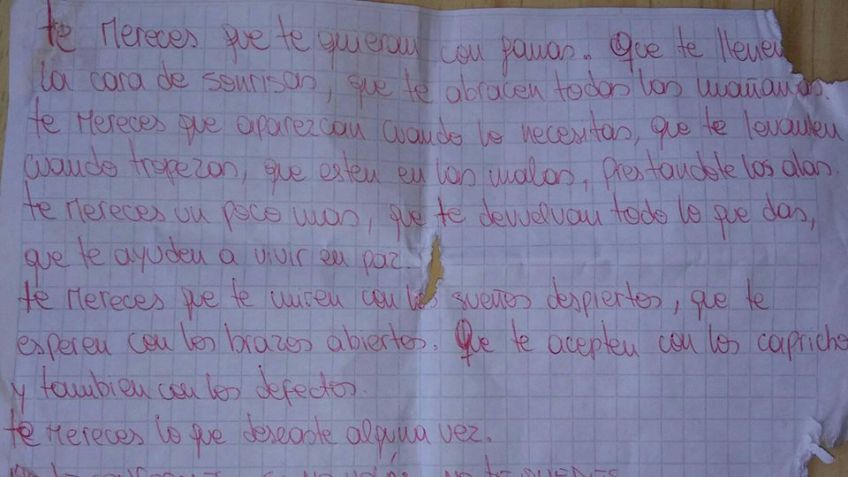 te mereces que te quieran con ganas. Que te llenen
la cara de sonrisas, que te abracen todas las mañanas.
te mereces que aparezcan cuando lo necesitas, que te levanten
cuando tropezas, que esten en las malas, prestandote las alas.
te mereces un poco mas, que te devuelvan todo lo que das,
que te ayuden a vivir en paz.
te mereces que te miren con los sueños despiertos, que te
esperen con los brazos abiertos. Que te acepten con los capricho
y tambien con los defectos.
te mereces lo que deseaste alguna vez.